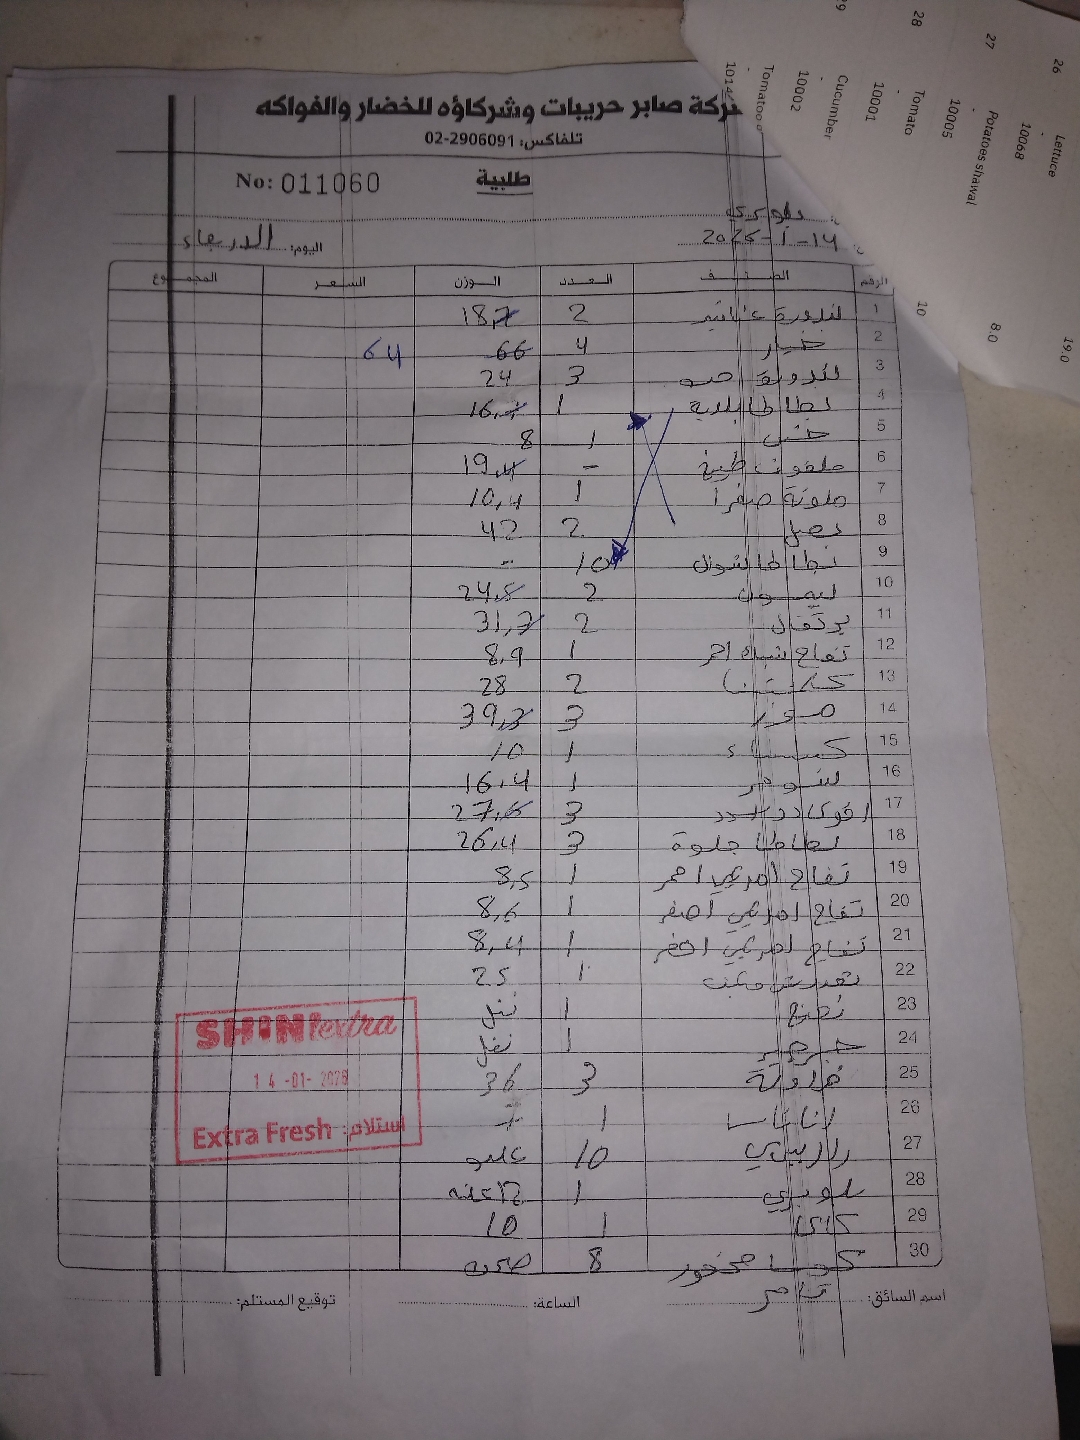 شركة صابر حريبات وشركاؤه للخضار والفواكه
تلفاكس: 02-2906091
طلبية
No: 011060
2026-1-14
اليوم: الاربعاء
الرقم الصنف العدد الوزن السعر المجموع
1 بندورة عناقيد 2 18,7
2 خيار 4 66 64
3 بندورة حب 3 24
4 بطاطا بلدية 1 16,4
5 خس 1 8
6 ملفوف طبيخ - 19,4
7 ملونة صفرا 1 10,4
8 بصل 2 42
9 بطاطا شوال 10 -
10 ليمون 2 24,5
11 برتقال 2 31,7
12 تفاح شبك احمر 1 8,9
13 كلمنتينا 2 28
14 موز 3 39,3
15 1 10
16 بوملي 1 16,4
17 افوكادو 3 27,6
18 بطاطا حلوة 3 26,4
19 تفاح امريكي احمر 1 8,5
20 تفاح امريكي اصفر 1 8,6
21 تفاح امريكي اخضر 1 8,4
22 بقدونس 1 25
23 نعنع 1
24 جرجير 1
25 فراولة 3 36
26 اناناس 1
27 10
28 بلوبري 1
29 كاكا 1 10
30 كوسا محفور 8 صحن
اسم السائق: تامر
الساعة:
توقيع المستلم:
SHINI extra
14-01-2026
استلام: Extra Fresh
26 Lettuce 10068 19.0
27 Potatoes shawal 10005 8.0
28 Tomato 10001 10
Cucumber 10002